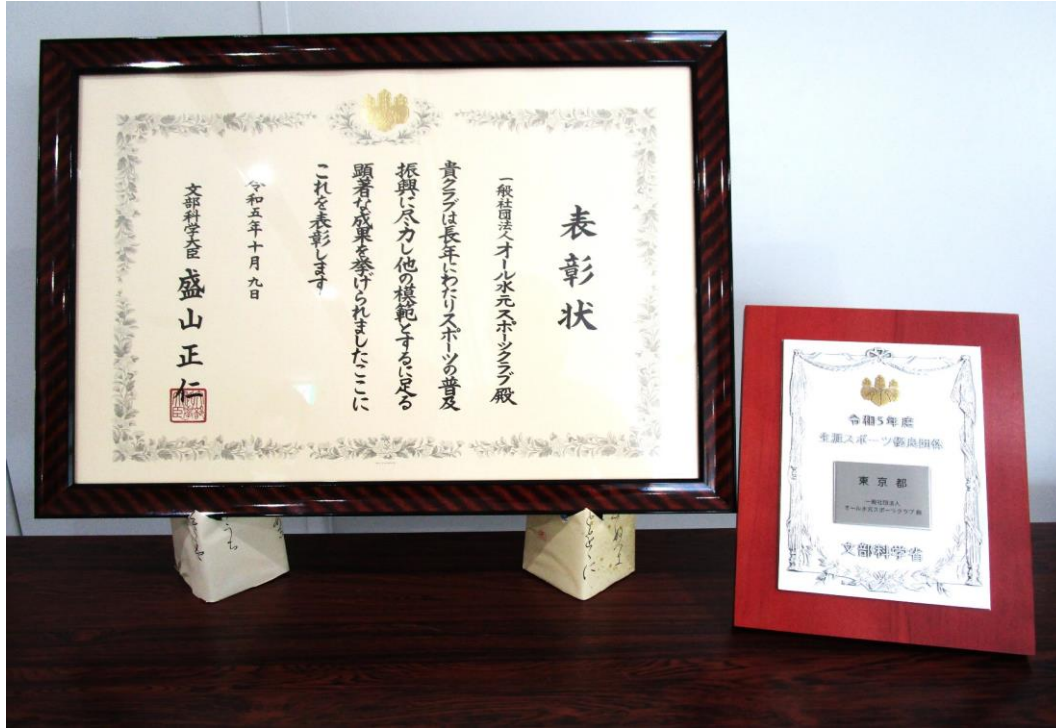 表彰状
一般社団法人オール水元スポーツクラブ殿
貴クラブは長年にわたりスポーツの普及
振興に尽力し他の模範とするに足る
顕著な成果を挙げられましたここに
これを表彰します
令和五年十月九日
文部科学大臣 盛山正仁
令和5年度
生涯スポーツ優良団体
東京都
一般社団法人
オール水元スポーツクラブ殿
文部科学省